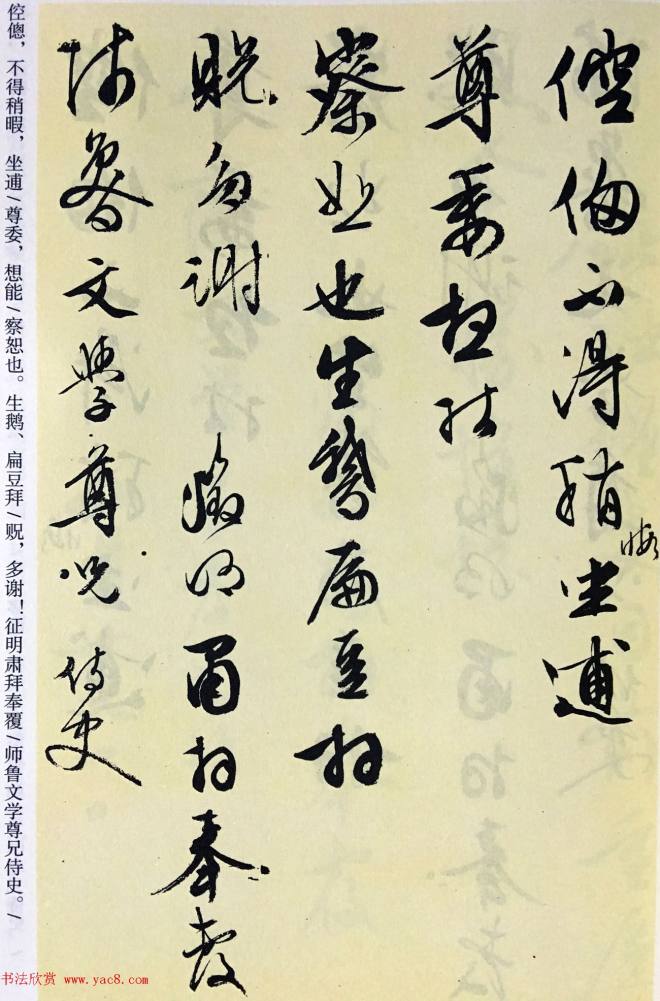 倥傯不得稍暇坐逋
尊委想能
察恕也生鵞扁豆拜
貺多謝 徵明肅拜奉覆
師魯文學尊兄侍史
倥傯，不得稍暇，坐逋/尊委，想能/察恕也。生鹅、扁豆拜/贶，多谢！征明肃拜奉覆/师鲁文学尊兄侍史。/
书法欣赏 www.yac8.com